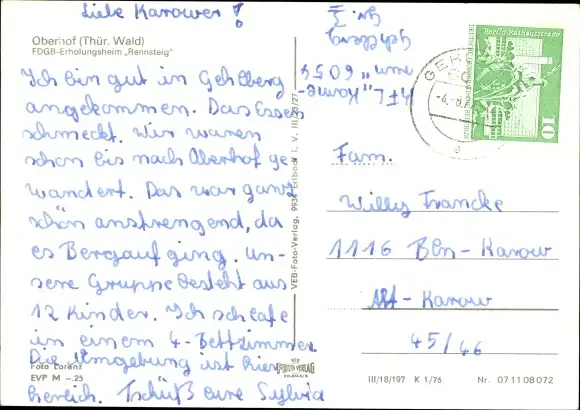 Liebe Karower!
Oberhof (Thür. Wald)
FDGB-Erholungsheim „Rennsteig"
Ich bin gut in Gehlberg
angekommen. Das Essen
schmeckt. Wir waren
schon bis nach Oberhof ge
wandert. Das war ganz
schön anstrengend, da
es Bergauf ging. Un-
sere Gruppe besteht aus
12 Kinder. Ich schlafe
in einem 4-Bettzimmer
Die Umgebung ist hier
herrlich. Tschüß eure Sylvia
Foto Lorenz
EVP M –.25
VEB-Foto-Verlag, 9934 Erlbach i. V. III/26/27
FOTO VERLAG
ERLBACH
6054
Gehlberg
GEH
Berlin Rathausstraße
10
Fam.
Willy Francke
1116 Bln-Karow
Alt-Karow
45/46
III/18/197 K 1/76 Nr. 07 11 08 072